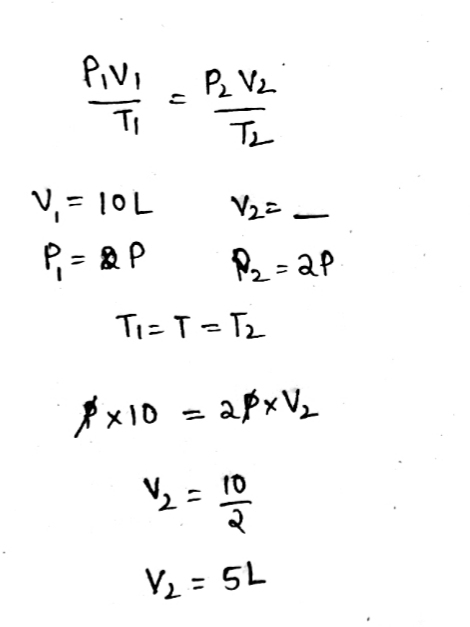 P₁V₁/T₁ = P₂V₂/T₂
V₁ = 10L V₂ = __
P₁ = P P₂ = 2P
T₁ = T = T₂
P × 10 = 2P × V₂
V₂ = 10/2
V₂ = 5L